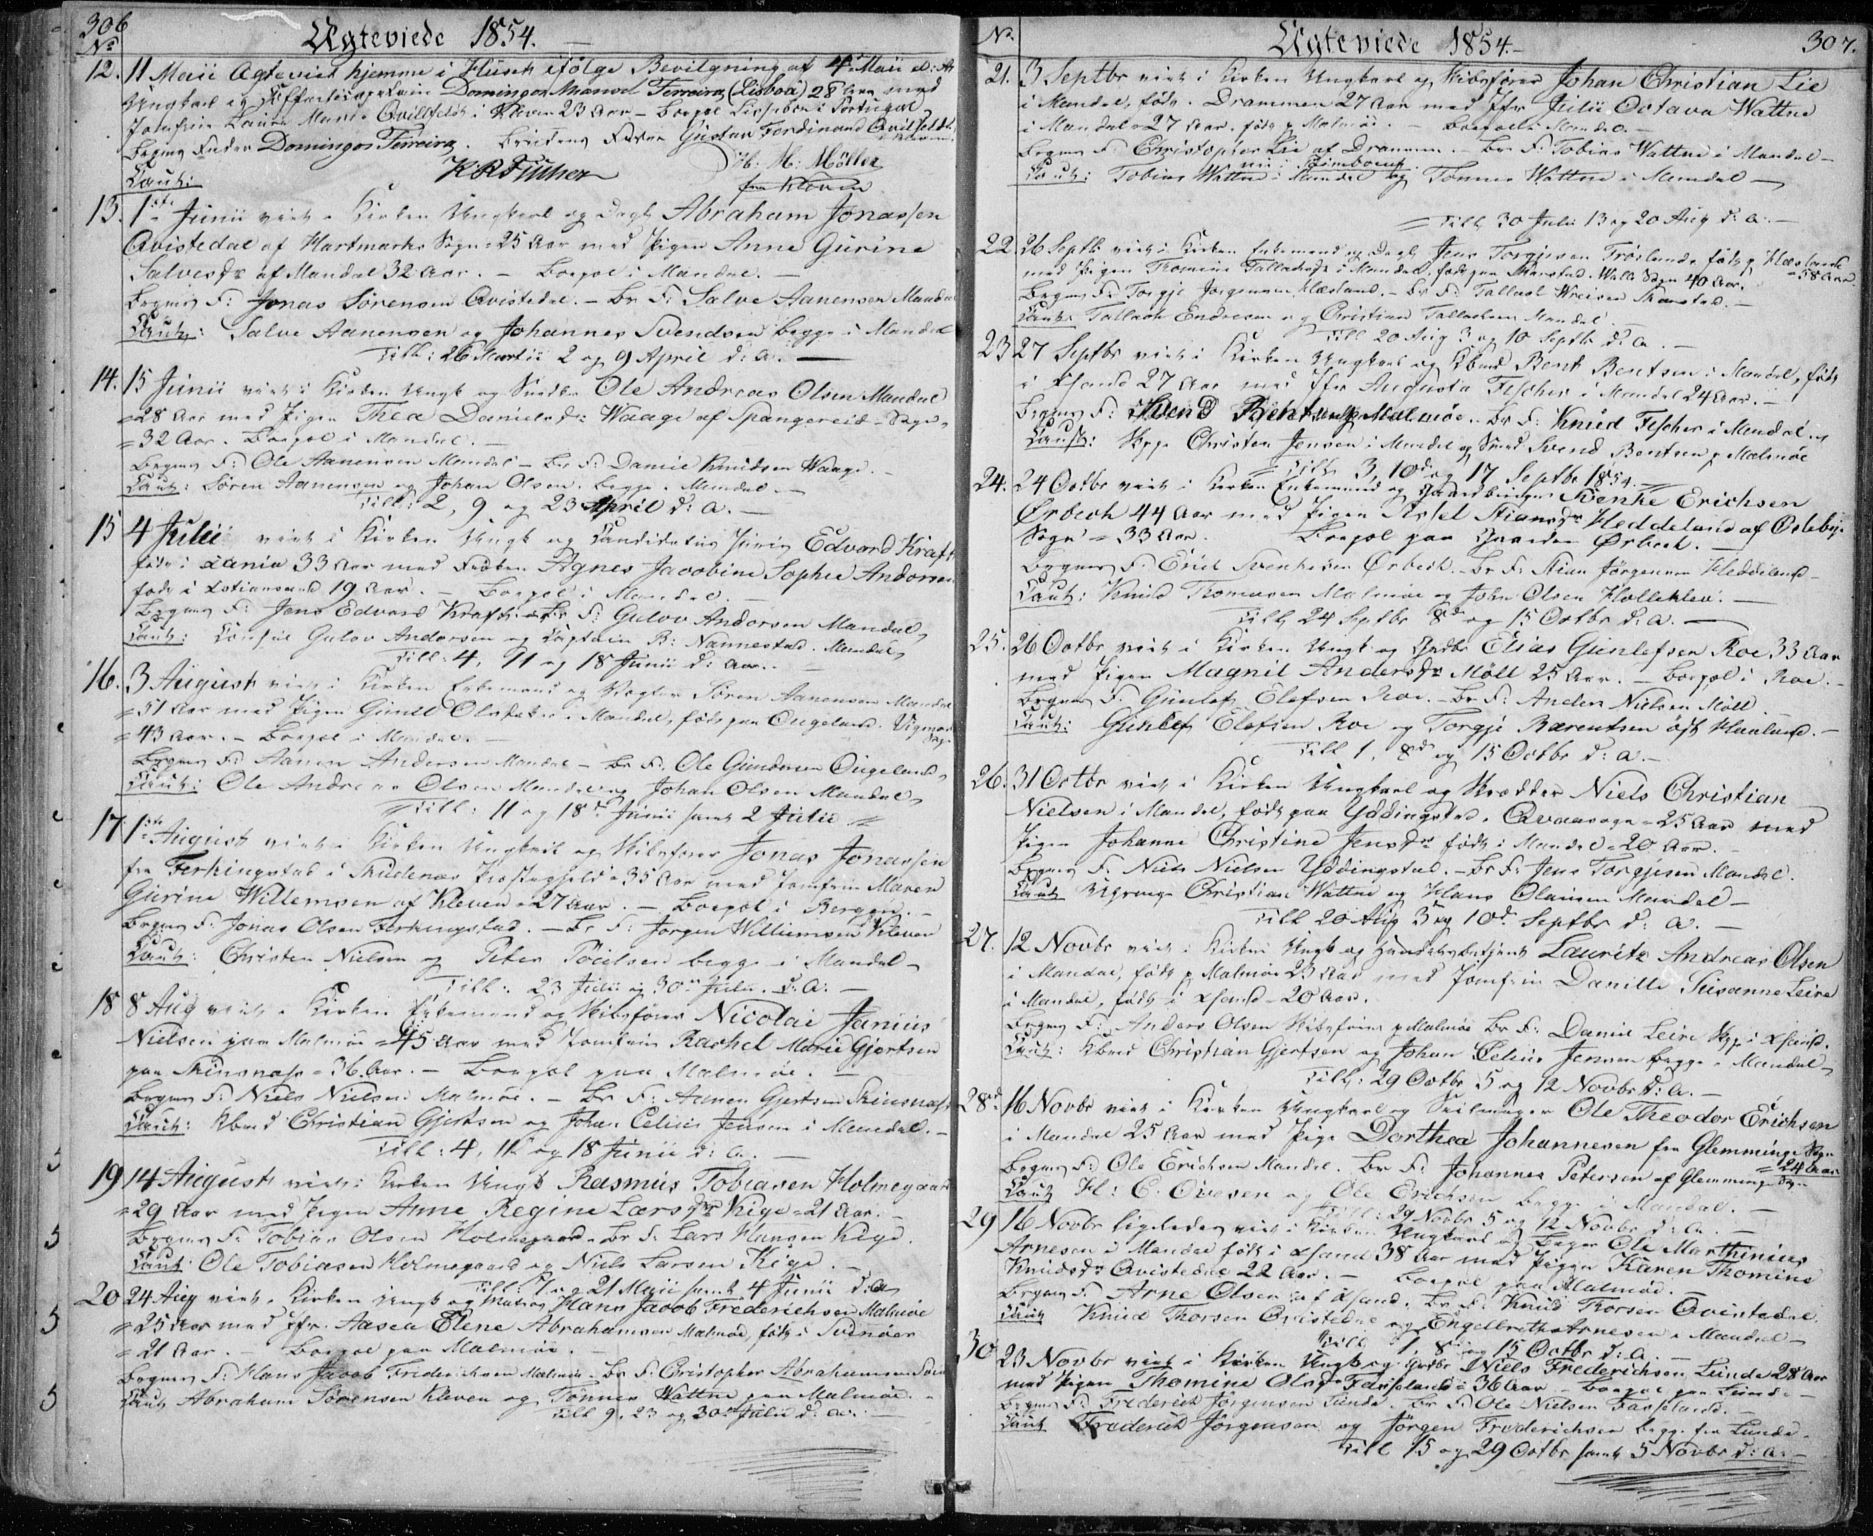 306
No
Ægteviede 1854.
12. 11 Maii Ægteviet hjemme i Huset ifølge Bevilgning af 4 Maii d: A:
Ungkarl og Domingos Manoel Ferreira (Lisboa) 28 Aar med
Jomfrue Laura Marie Qvilfeldt i Kleven 23 Aar – Bopæl Lissabon i Portugal
Brgms Fader Domingos Ferreira. Brudens Fader Gustav Ferdinand Qvilfeldt
Caut: H. M. Møller
fra Kleven
13. 1ste Junii viet i Kirken Ungkarl og Abraham Jonassen
Qvistedal af Hartmarks Sogn 25 Aar med Pigen Anne Gurine
Salvesdr af Mandal 32 Aar. – Bopæl i Mandal. –
Brgms F: Jonas Sørensen Qvistedal. – Br F: Salve Aanensen Mandal
Caut: Salve Aanensen og Johannes Svendsen begge i Mandal
Till: 26 Martii 2 og 9 April d: A. –
14. 15 Junii viet i Kirken Ungk og Snedker Ole Andreas Olsen Mandal
= 28 Aar med Pigen Thea Danielsdr Waage af Spangereid Sogn
= 32 Aar. Bopæl i Mandal. –
Brgms F: Ole Aanensen Mandal – Br F: Daniel Knudsen Waage. –
Caut: Søren Aanensen og Johan Olsen. begge i Mandal. –
Till: 2, 9 og 23 April d: A. –
15 4 Julii viet i Kirken Ungk og Candidatus Juris Edvard Kraft
født i Xania 33 Aar med Frøken Agnes Jacobine Sophie Andorsen
født i Xstiansund 19 Aar. – Bopæl i Mandal. –
Brgms F: Jens Edvard Kraft – Br F: Gulov Andorsen Mandal
Caut: Consul Gulov Andorsen og Captain B: Nannestad. Mandal
Till: 4, 11 og 18 Junii d: Aar. –
16. 3 August viet i Kirken Enkemand og Søren Aanensen Mandal
= 51 Aar med Pigen Gunild Olsdatter i Mandal, født paa Ougeland. Vigmost. Sogn
= 43 Aar. – Bopæl i Mandal. –
Brgms F: Aanen Andersen Mandal – Br F: Ole Gundersen Ougeland
Caut: Ole Andreas Olsen Mandal og Johan Olsen Mandal
Till: 11 og 18de Junii samt 2 Julii
17 1ste August viet i Kirken Ungkarl og Skibsfører Jonas Jonassen
fra Ferkingstad i Skudenæs Præstegjeld 35 Aar med Jomfrue Maren
Gurine Willemsen af Kleven 27 Aar. – Bopæl i Bergen. –
Brgms F: Jonas Olsen Ferkingstad. – Br F: Jørgen Willumsen Kleven
Caut: Christen Nielsen og Peter Poulsen begge i Mandal
Till: 23 Julii og 30te Julii. d: A: –
18 8 Aug viet i Kirken Enkemand og Skibsfører Nicolai Junius
Nielsen paa Malmøe 45 Aar med Jomfrue Rachel Marie Gjertsen
paa Skinsnæs 36 Aar. – Bopæl paa Malmøe. –
Brgms F: Niels Nielsen Malmøe. – Br F: Aanen Gjertsen Skinsnæs
Caut: Kbmd Christian Gjertsen og Johan Celius Jensen i Mandal. –
Till: 4, 11 og 18 Junii d: A. –
19 14 August viet i Kirken Ungk Rasmus Tobiasen Holmegaard
= 29 Aar med Pigen Anne Regine Larsdr Kige 21 Aar. –
Brgms F: Tobias Olsen Holmegaard. Br F: Lars Hansen Kige.
Caut: Ole Tobiasen Holmegaard og Niels Larsen Kige. –
Till: 7 og 21 Maii samt 4 Junii d: A
20 24 Aug viet i Kirken Ungk og Matros Hans Jacob Frederichsen Malmøe
= 25 Aar med Jfr. Aasea Elene Abrahamsen Malmøe, født i
= 21 Aar. – Bopæl paa Malmøe. –
Brgms F: Hans Jacob Frederichsen Malmøe. Br F: Cristopher Abrahamsen
Caut Abraham Sørensen Kleven og Tønnes Wattne paa Malmøe. –
Till 9, 23 og 30te Julii d: A: –
No.
Ægteviede 1854.
307.
21. 3 Septbr viet i Kirken Ungkarl og Skibsfører Johan Christian Lie
i Mandal, født i Drammen 27 Aar med Jfr Julie Octava Wattne
i Mandal 27 Aar. født p Malmøe. – Bopæl i Mandal. –
Brgms F: Christopher Lie af Drammen. – Br F: Tobias Wattne i Mandal –
Caut: Tobias Wattne i Mandal og Tønnes Wattne i Mandal –
Till 30 Julii 13 og 20 Aug d: A: –
22. 26 Septb viet i Kirken Enkemand og Jens Torgiersen Trosland født p Klæsland
= 58 Aar
med Pigen Thomine Tallaksdr i Mandal, født paa Walle Sogn 40 Aar.
Brgms F: Torgje Jørgensen Klæsland. – Br F:
Caut: Tallach Endresen og Christian Tallachsen Mandal
Till 20 Aug 3 og 10 Septb d: A. –
23 27 Septbr viet i Kirken Ungkarl og Kbmd Bent Bentsen i Mandal, født
i Xsand 27 Aar med Jfr Augusta Fischer i Mandal 24 Aar. –
Brgms F: Svend Bentsen p Malmøe. Br F: Knud Fischer i Mandal.
Caut: Christen Jensen i Mandal og Svend Bentsen p Malmøe
Till 3, 10de og 17 Septbr 1854. –
24. 24 Octbr viet i Kirken Enkemand og Gaardbruger Svenke Erichsen
Ørbech 44 Aar med Pigen Assel Stiansdr Heddeland af Oslebye
Sogn = 33 Aar. Bopæl paa Gaarden Ørbech. –
Brgms F: Erich Svenkesen Ørbech. – Br F: Stian Jørgensen Heddeland –
Caut: Knud Thomasen Malmøe og John Olsen Holleklev. –
Till 24 Septbr 8de og 15 Octbr d: A. –
25. 26 Octbr viet i Kirken Ungk og Elias Gunlefsen Roe 33 Aar
med Pigen Magnil Andersdr Møll 25 Aar. – Bopæl i Roe. –
Brgms F: Gunlef Elefsen Roe. – Br F: Anders Nielsen Møll.
Caut: Gunlef Elefsen Roe og Torgje Bærentsen øst Haaland. –
Till 1, 8de og 15 Octbr d: A. –
26. 31 Octbr viet i Kirken Ungkarl og Skrædder Niels Christian
Nielsen i Mandal, født paa Yddingstad, 25 Aar med
Pigen Johanne Christine Jensdr født i Mandal 20 Aar. –
Brgms F: Niels Nielsen Yddingstad. – Br F: Jens Torgjesen Mandal.
Caut Christian Wattne og Hans Olausen Mandal –
Till 20 Aug 3 og 10de Septbr d: A. –
27. 12 Novbr viet i Kirken Ungk og Handelsbetjent Lauritz Andreas Olsen
i Mandal, født p Malmøe 23 Aar med Jomfrue Danille Susanne Leire
i Mandal, født i Xsand 20 Aar.
Brgms F: Anders Olsen Skibsfører p Malmøe Br F: Daniel Leire i Xsand.
Caut: Kbmd Christian Gjertsen og Johan Celius Jensen begge i Mandal –
Till: 29 Octbr 5 og 12 Novbr d: A. –
28de 16 Novbr viet i Kirken Ungkarl og Seilmager Ole Theodor Erichsen
i Mandal 25 Aar med Pige Dorthea Johannesen fra Glemminge Sogn
= 24 Aar
Brgms F: Ole Erichsen Mandal. Br F: Johannes Petersen af Glemminge Sogn
Caut H: C. Ovesen og Ole Erichsen begge i Mandal. –
Till: 29 Novbr 5 og 12 Novbr d: A. –
29 16 Novbr ligeledes viet i Kirken Ungkarl og Bager Ole Marthinius
Arnesen i Mandal født i Xsand 38 Aar med Pigen Karen Thomine
Knudsdr Qvistedal 22 Aar. – Bopæl paa Malmøe.
Brgms F: Arne Olsen af Xsand. Br F: Knud Thorsen Qvistedal
Caut Knud Thorsen Qvistedal og Engelbreth Arnesen i Mandal –
Till 1, 8de og 15 Octbr d: A. –
30 23 Novbr viet i Kirken Ungk og Niels Frederichsen Lunde 28 Aar
med Pigen Thomine Olsdr Fasseland 36 Aar – Bopæl paa Lunde –
Brgms F: Frederich Jørgensen Lunde. Br F: Ole Nielsen Fasseland. –
Caut Frederich Jørgensen og Jørgen Frederichsen begge fra Lunde.
Till 15 og 29 Octbr samt 5 Novbr d: A: –